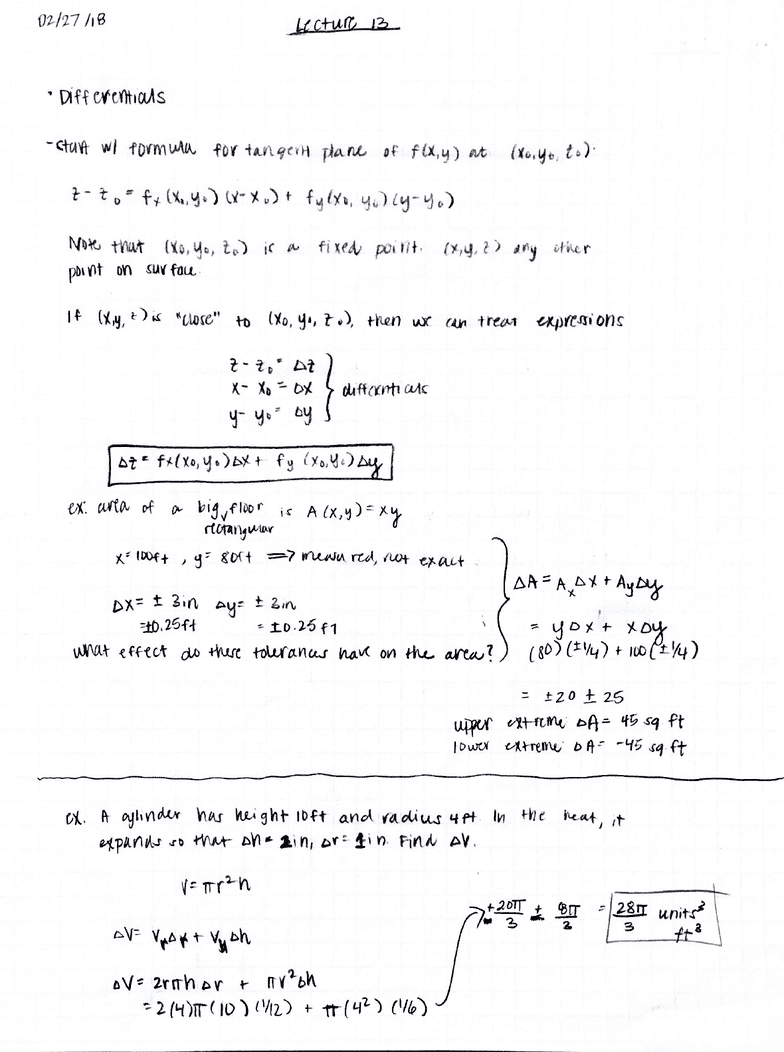 02/27/18
Lecture 13
• Differentials
- start w/ formula for tangent plane of f(x,y) at (x₀,y₀,z₀).
z - z₀ = fₓ(x₀,y₀)(x-x₀) + f_y(x₀,y₀)(y-y₀)
Note that (x₀,y₀,z₀) is a fixed point. (x,y,z) any other
point on surface.
If (x,y,z) is "close" to (x₀,y₀,z₀), then we can treat expressions
z - z₀ = Δz
x - x₀ = Δx } differentials
y - y₀ = Δy
Δz = fₓ(x₀,y₀)Δx + f_y(x₀,y₀)Δy
ex. area of a big rectangular floor is A(x,y) = xy
x = 100ft, y = 80ft ⟹ measured, not exact
Δx = ± 3in Δy = ± 3in
= ±0.25ft = ±0.25ft
what effect do these tolerances have on the area?
ΔA = AₓΔx + A_yΔy
= yΔx + xΔy
(80)(±1/4) + 100(±1/4)
= ±20 ± 25
upper extreme ΔA = 45 sq ft
lower extreme ΔA = -45 sq ft
ex. A cylinder has height 10ft and radius 4ft. In the heat, it
expands so that Δh = 2in, Δr = 1in. Find ΔV.
V = πr²h
ΔV = VᵣΔr + V_hΔh
ΔV = 2rπhΔr + πr²Δh
= 2(4)π(10)(1/12) + π(4²)(1/6)
+20π/3 + 8π/3 = 28π/3 units³
ft³